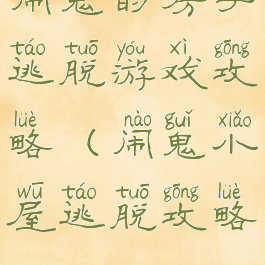 闹鬼的房子
táo tuō yóu xì gōng
逃脱游戏攻
lüè nào guǐ xiǎo
略（闹鬼小
wū táo tuō gōng lüè
屋逃脱攻略